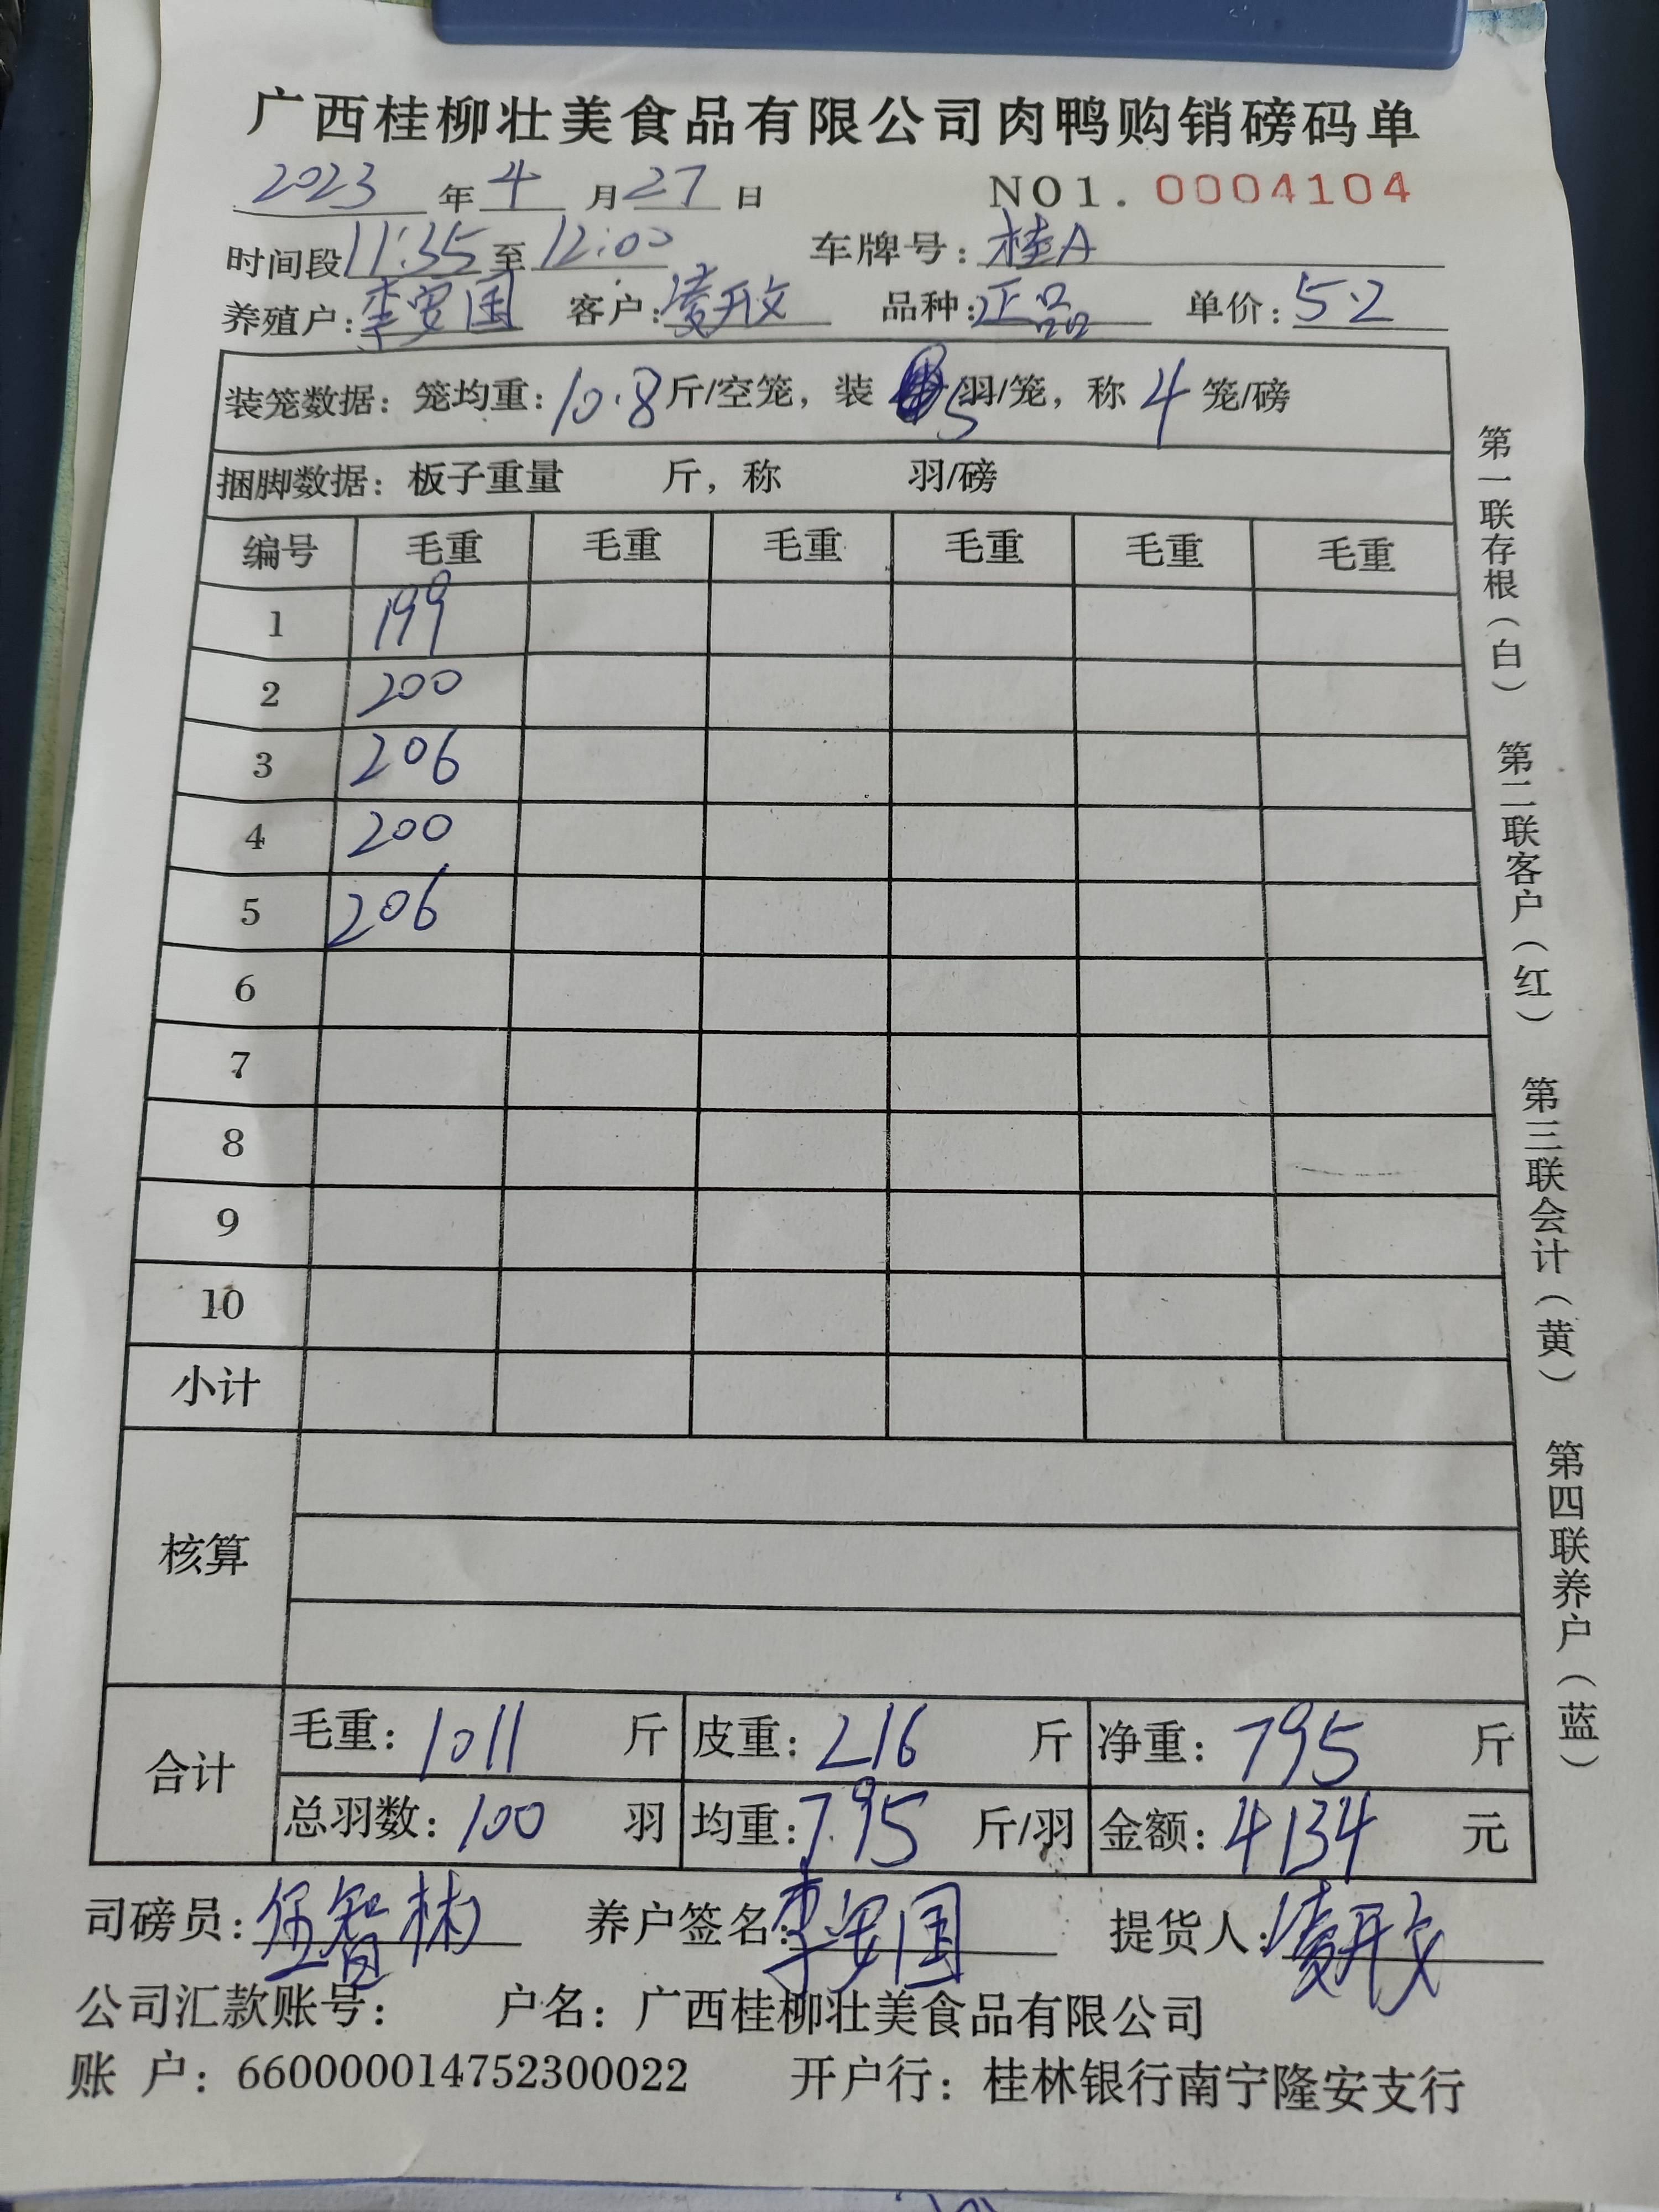 广西桂柳壮美食品有限公司肉鸭购销磅码单
2023 年 4 月 27 日 NO1. 0004104
时间段 11:35 至 12:00 车牌号: 桂A
养殖户: 李安国 客户: 凌开文 品种: 正品 单价: 5.2
装笼数据: 笼均重: 10.8 斤/空笼, 装 5 羽/笼, 称 4 笼/磅
捆脚数据: 板子重量 斤, 称 羽/磅
编号 毛重 毛重 毛重 毛重 毛重 毛重
1 199
2 200
3 206
4 200
5 206
6
7
8
9
10
小计
核算
合计
毛重: 1011 斤 皮重: 216 斤 净重: 795 斤
总羽数: 100 羽 均重: 7.95 斤/羽 金额: 4134 元
司磅员: 伍智彬 养户签名: 李安国 提货人: 凌开文
公司汇款账号: 户名: 广西桂柳壮美食品有限公司
账 户: 660000014752300022 开户行: 桂林银行南宁隆安支行
第一联存根（白） 第二联客户（红） 第三联会计（黄） 第四联养户（蓝）